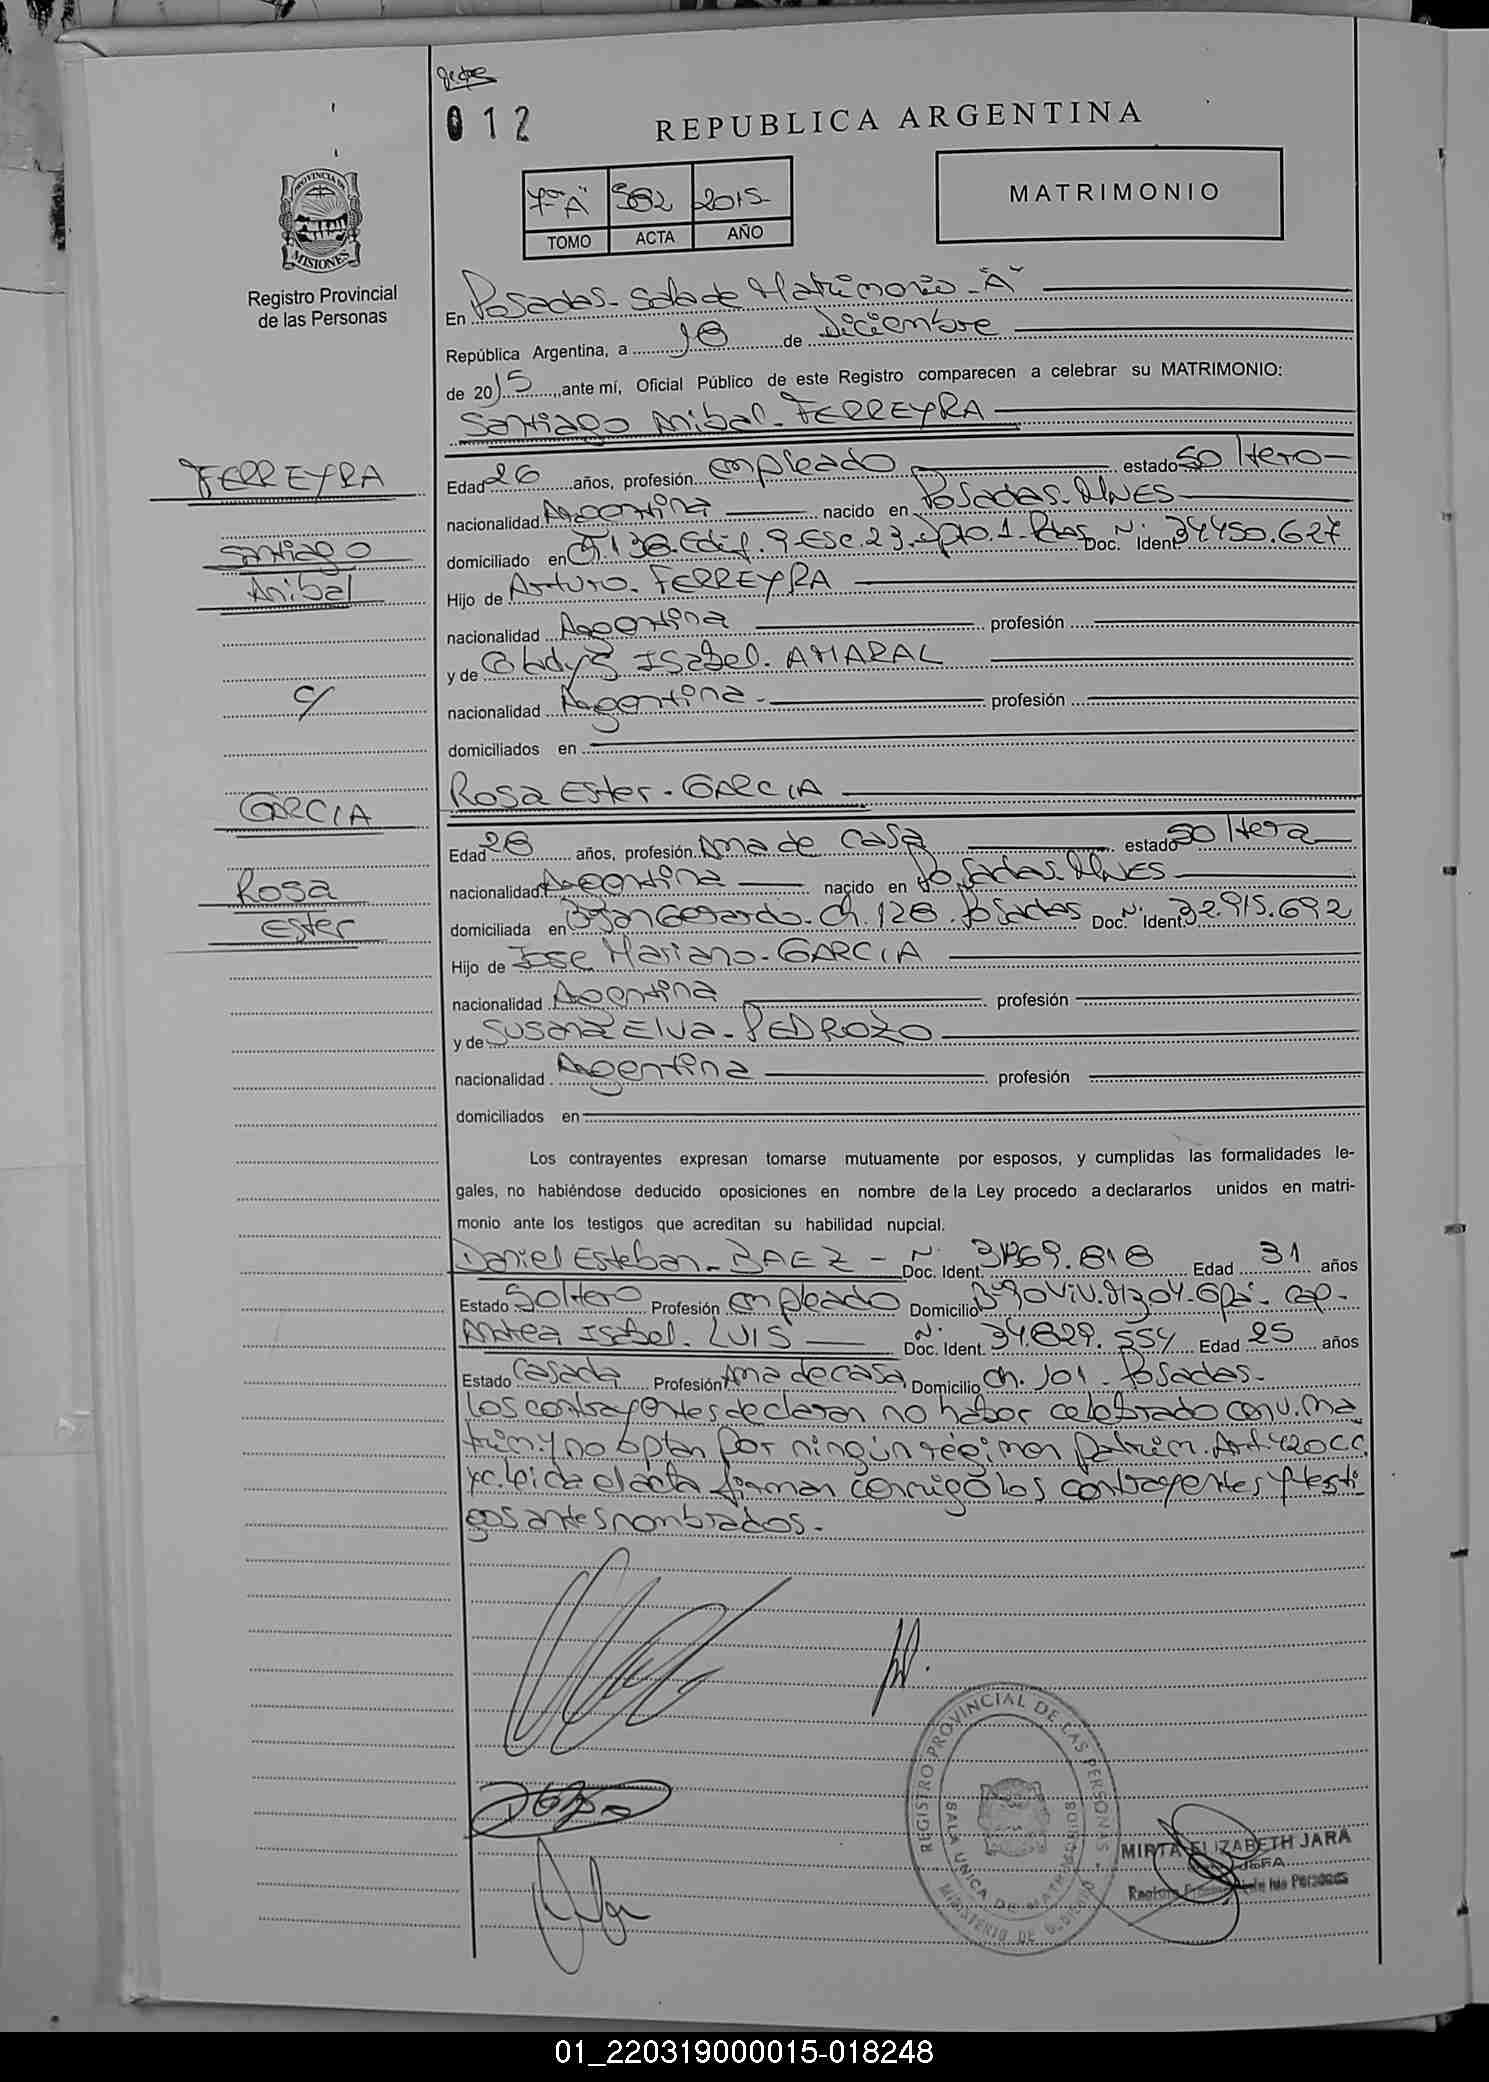 012
REPUBLICA ARGENTINA
PROVINCIA DE MISIONES
Registro Provincial
de las Personas
7º "A" 582 2015
TOMO ACTA AÑO
MATRIMONIO
En Posadas - Sala de Matrimonio - "A"
República Argentina, a 18 de Diciembre
de 2015, ante mí, Oficial Público de este Registro comparecen a celebrar su MATRIMONIO:
Santiago Anibal - FERREYRA
FERREYRA
Santiago
Anibal
c/
GARCIA
Rosa
Ester
Edad 26 años, profesión empleado estado soltero -
nacionalidad Argentina nacido en Posadas - Mnes
domiciliado en Ch. 138. Edif. 9. Esc. 23. Dpto. 1. Pdas Doc. Nº Ident. 34450.627
Hijo de Arturo - FERREYRA
nacionalidad Argentina profesión
y de Gladys Isabel - AMARAL
nacionalidad Argentina - profesión
domiciliados en
Rosa Ester - GARCIA
Edad 28 años, profesión Ama de Casa estado soltera
nacionalidad Argentina nacido en Posadas - Mnes
domiciliada en Ch. 128 - Posadas Doc. Nº Ident. 32.915.692
Hijo de Jose Mariano - GARCIA
nacionalidad Argentina profesión
y de Susana Elva - PEDROZO
nacionalidad Argentina profesión
domiciliados en
Los contrayentes expresan tomarse mutuamente por esposos, y cumplidas las formalidades le-
gales, no habiéndose deducido oposiciones en nombre de la Ley procedo a declararlos unidos en matri-
monio ante los testigos que acreditan su habilidad nupcial.
Daniel Esteban - BAEZ - Nº Doc. Ident. Edad 31 años
Estado Soltero Profesión empleado Domicilio
Isabel - LUIS Nº Doc. Ident. 34.829.554 Edad 25 años
Estado Casada Profesión Ama de casa Domicilio Ch. 101 - Posadas -
Los contrayentes declaran no haber celebrado conv. ma
trim. y no optan por ningún régimen patrim. Art. 420 C.C.
y C. leida el acta firman conmigo los contrayentes y testi
gos antes nombrados -
REGISTRO PROVINCIAL DE LAS PERSONAS
SALA UNICA DE MATRIMONIOS
MINISTERIO DE GOBIERNO
MIRTA ELIZABETH JARA
JEFA
Registro Provincial de las Personas
01_220319000015-018248